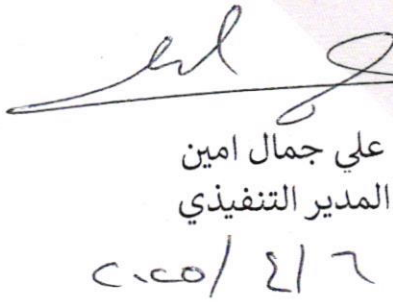 علي جمال امين
المدير التنفيذي
٢٠٢٥/٤/٦